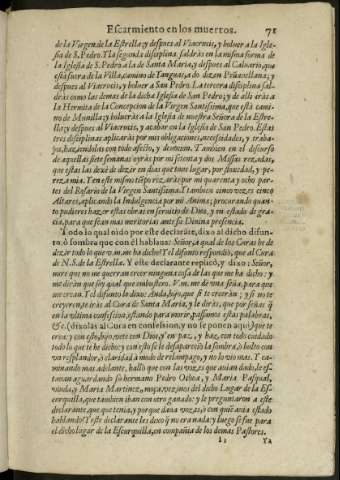 Escarmiento en los muertos. 71
de la Virgen de la Estrella; y despues al Viacrucis, y bolver a la Igle-
sia de S. Pedro. Y la segunda disciplina saldràs en la misma forma de
la Iglesia de S. Pedro à la de Santa Maria, y despues al Calvario, que
està fuera de la Villa, camino de Yanguas, a do dizen Peñavellana; y
despues al Viacrucis, y bolver a San Pedro. La tercera disciplina sal-
dràs como las demas de la dicha Iglesia de San Pedro; y de alli iràs a
la Hermita de la Concepcion de la Virgen Santissima, que està cami-
no de Munilla; y bolveràs a la Iglesia de nuestra Señora de la Estre-
lla; y despues al Viacrucis, y acabar en la Iglesia de San Pedro. Estas
tres disciplinas aplicaràs por mis obligaciones, necessidades, y traba-
jos, hazeandolas con todo afecto, y devocion. Tambien en el discurso
de aquellas siete semanas oyràs por mi setenta y dos Missas rezadas,
que estas las dexè de dezir en dias que tuve lugar, por floxedad, y pe-
reza mia. Y en este mismo tiẽpo rezaràs por mi quarenta y ocho par-
tes del Rosario de la Virgen Santissima. Y tambien cinco vezes cinco
Altares, aplicando la Indulgencia por mi Anima; procurando quan-
to pudieres hazer estas obras en servicio de Dios, y en estado de gra-
cia, para que sean mas meritorias ante su Divina presencia.
Todo lo qual oido por este declarãte, dixo al dicho difun-
to, ò sombra que con èl hablava: Señor, à qual de los Curas he de
dezir todo lo que v.m. me ha dicho? Y el difunto respondiò, que al Cura
de N.S. de la Estrella. Y este declarante replicò, y dixo: Señor,
mire que no me querran creer ninguna cosa de las que me ha dicho: y
me diràn que soy qual que embustero. V.m. me dè una seña, para que
me crean. Y el difunto le dixo: Anda hijo, que si te creeràn; y si no te
creyeren, te iràs al Cura de Santa Maria, y le diràs, que por señas q̃
en la vltima confession, estando para morir, passamos estas palabras,
&c. (dixolas al Cura en confession, y no se ponen aqui) que te
crea: y con esto, hijo, vete con Dios, y en paz, y haz con todo cuidado
todo lo que te he dicho; y con esto se desapareciò la sombra, ò bulto con
un resplandor, ò claridad à modo de relampago, y no lo viò mas. Y ca-
minando mas adelante, hallò que con las vozes que avian dado, le es-
tavan aguardando su hermano Pedro Ochoa, y Maria Pasqual,
viuda, y Maria Martinez, moça, vezinos del dicho Lugar de la Es-
curquilla, que tambien iban con otro ganado: y le preguntaron a este
declarante, que que tenia, y porque dava vozes, ò con quiẽ avia estado
hablando? Y este declarante les dixo q̃ no era nada: y luego se fue para
el dicho lugar de la Escurquilla, en compañia de los demas Pastores.
I 3 Ya